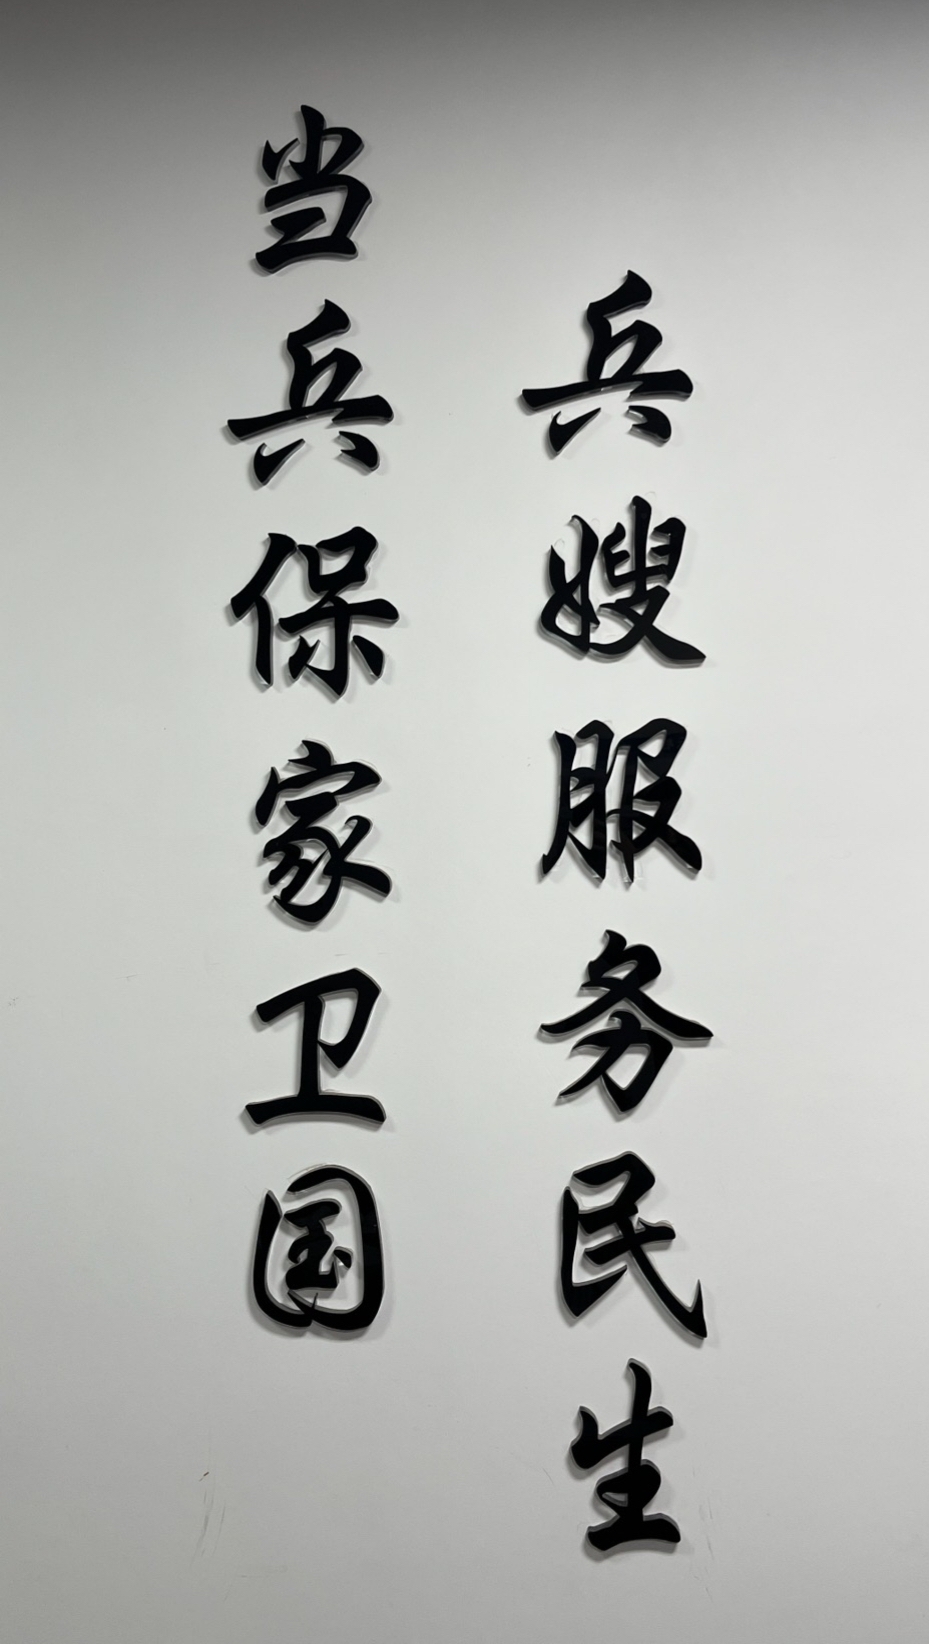 当兵保家卫国
兵嫂服务民生